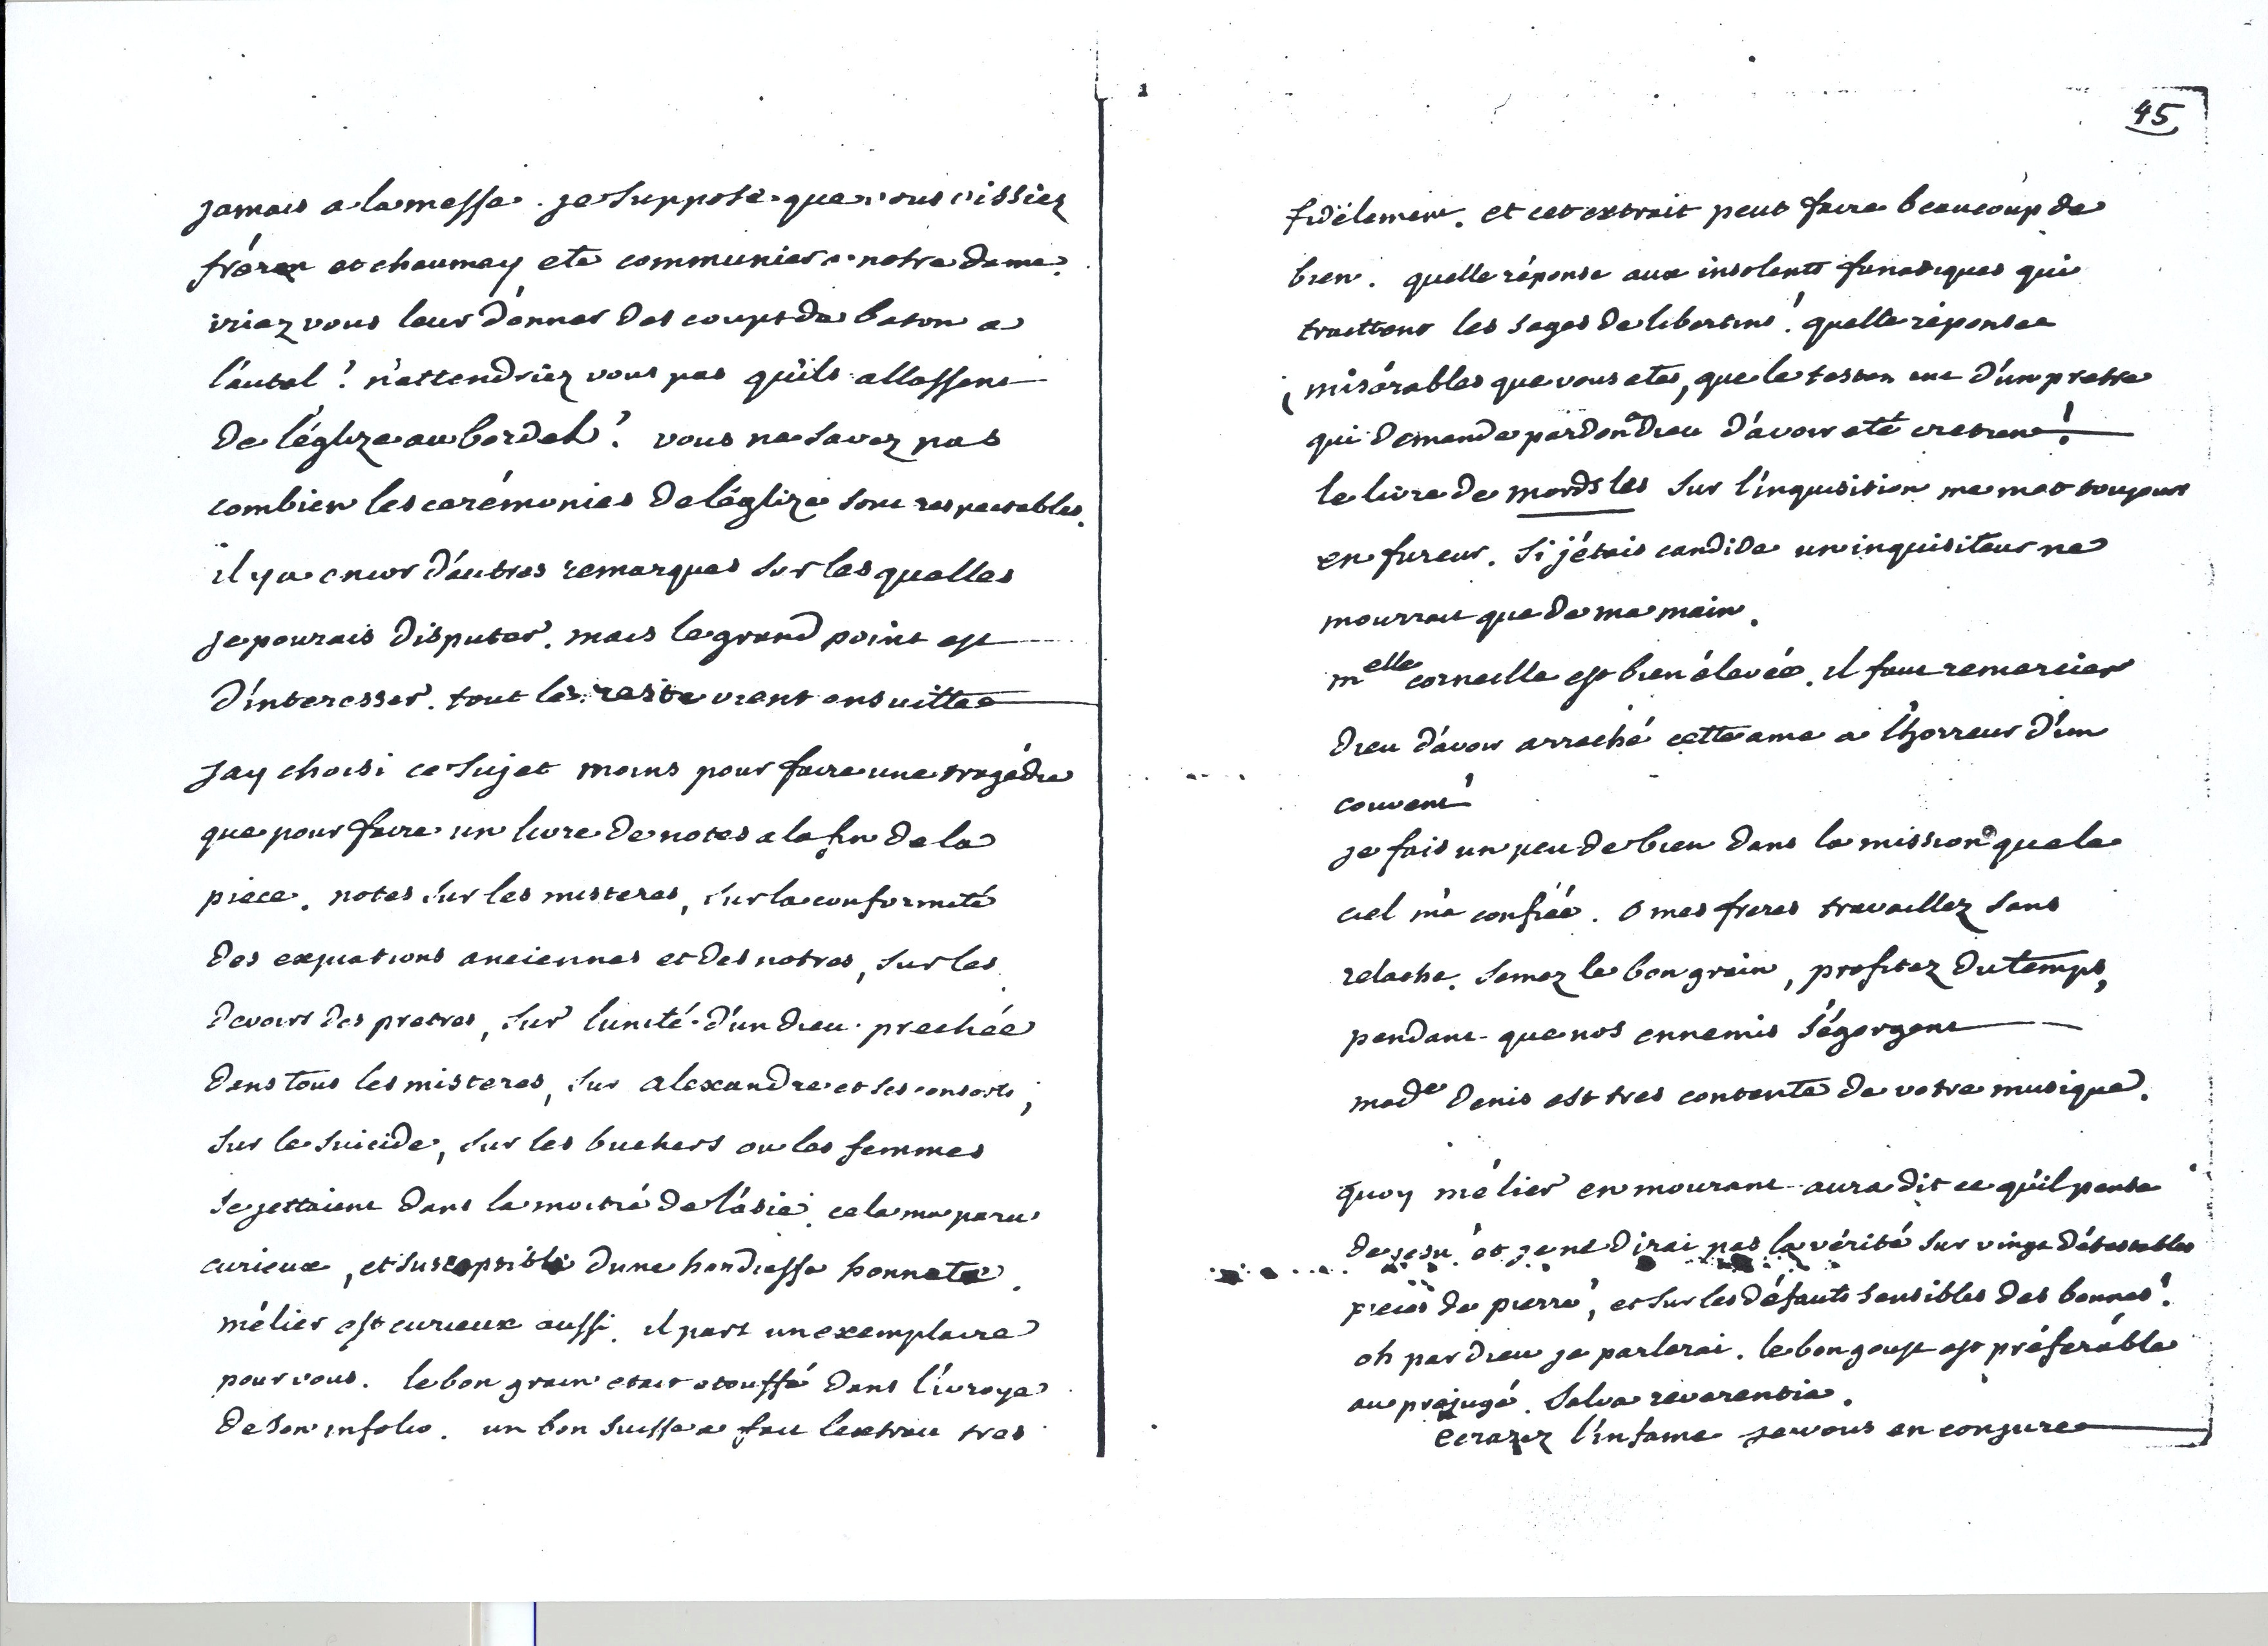 jamais a la messe. je suppose que vous vissiez
fréron et chaumey ete communier a notre dame.
iriez vous leur donner des coups de baton a
l'autel? n'attendriez vous pas qu'ils allassent
de l'églize au bordel? vous ne savez pas
combien les cerémonies de l'églize sont respectables.
il y a encor d'autres remarques sur les quelles
je pourais disputer. mais le grand point est
d'interesser. tout le reste vient ensuitte
jay choisi ce sujet moins pour faire une tragédie
que pour faire un livre de notes a la fin de la
piece. notes sur les misteres, sur la conformité
des expiations anciennes et des notres, sur les
devoirs des pretres, sur l'unité d'un dieu prechée
dans tous les misteres, sur alexandre et ses consorts,
sur le suicide, sur les buchers ou les femmes
se jettaient dans la moitié de l'asie. cela ma paru
curieux, et susceptible dune hardiesse honnete.
mélier est curieux aussi. il part un exemplaire
pour vous. le bon grain etait etouffé dans l'ivroye
de son infolio. un bon suisse a fait lextrait tres
45
fidèlement. et cet extrait peut faire beaucoup de
bien. quelle réponse aux insolents fanatiques qui
traittent les sages de libertins! quelle réponse
misérables que vous etes, que le testament d'un pretre
qui demande pardon a dieu d'avoir eté cretien!
le livre de mords les sur l'inquisition me met toujours
en fureur. si j'étais candide un inquisiteur ne
mourrait que de ma main.
melle corneille est bien élevée. il faut remercier
dieu d'avoir arraché cette ame a l'horreur d'un
couvent
je fais un peu de bien dans la mission que le
ciel m'a confiée. o mes freres travaillez sans
relache. semez le bon grain, profitez du temps,
pendant que nos ennemis s'égorgent
made denis est tres contente de votre musique.
quoy mélier en mourant aura dit ce qu'il pense
de jesu et je ne dirai pas la vérité sur vingt détestables
pieces de pierre, et sur les défauts sensibles des bonnes!
oh par dieu je parlerai. le bon goust est préferable
au préjugé. salva reverentia.
écrazez l'infame je vous en conjure